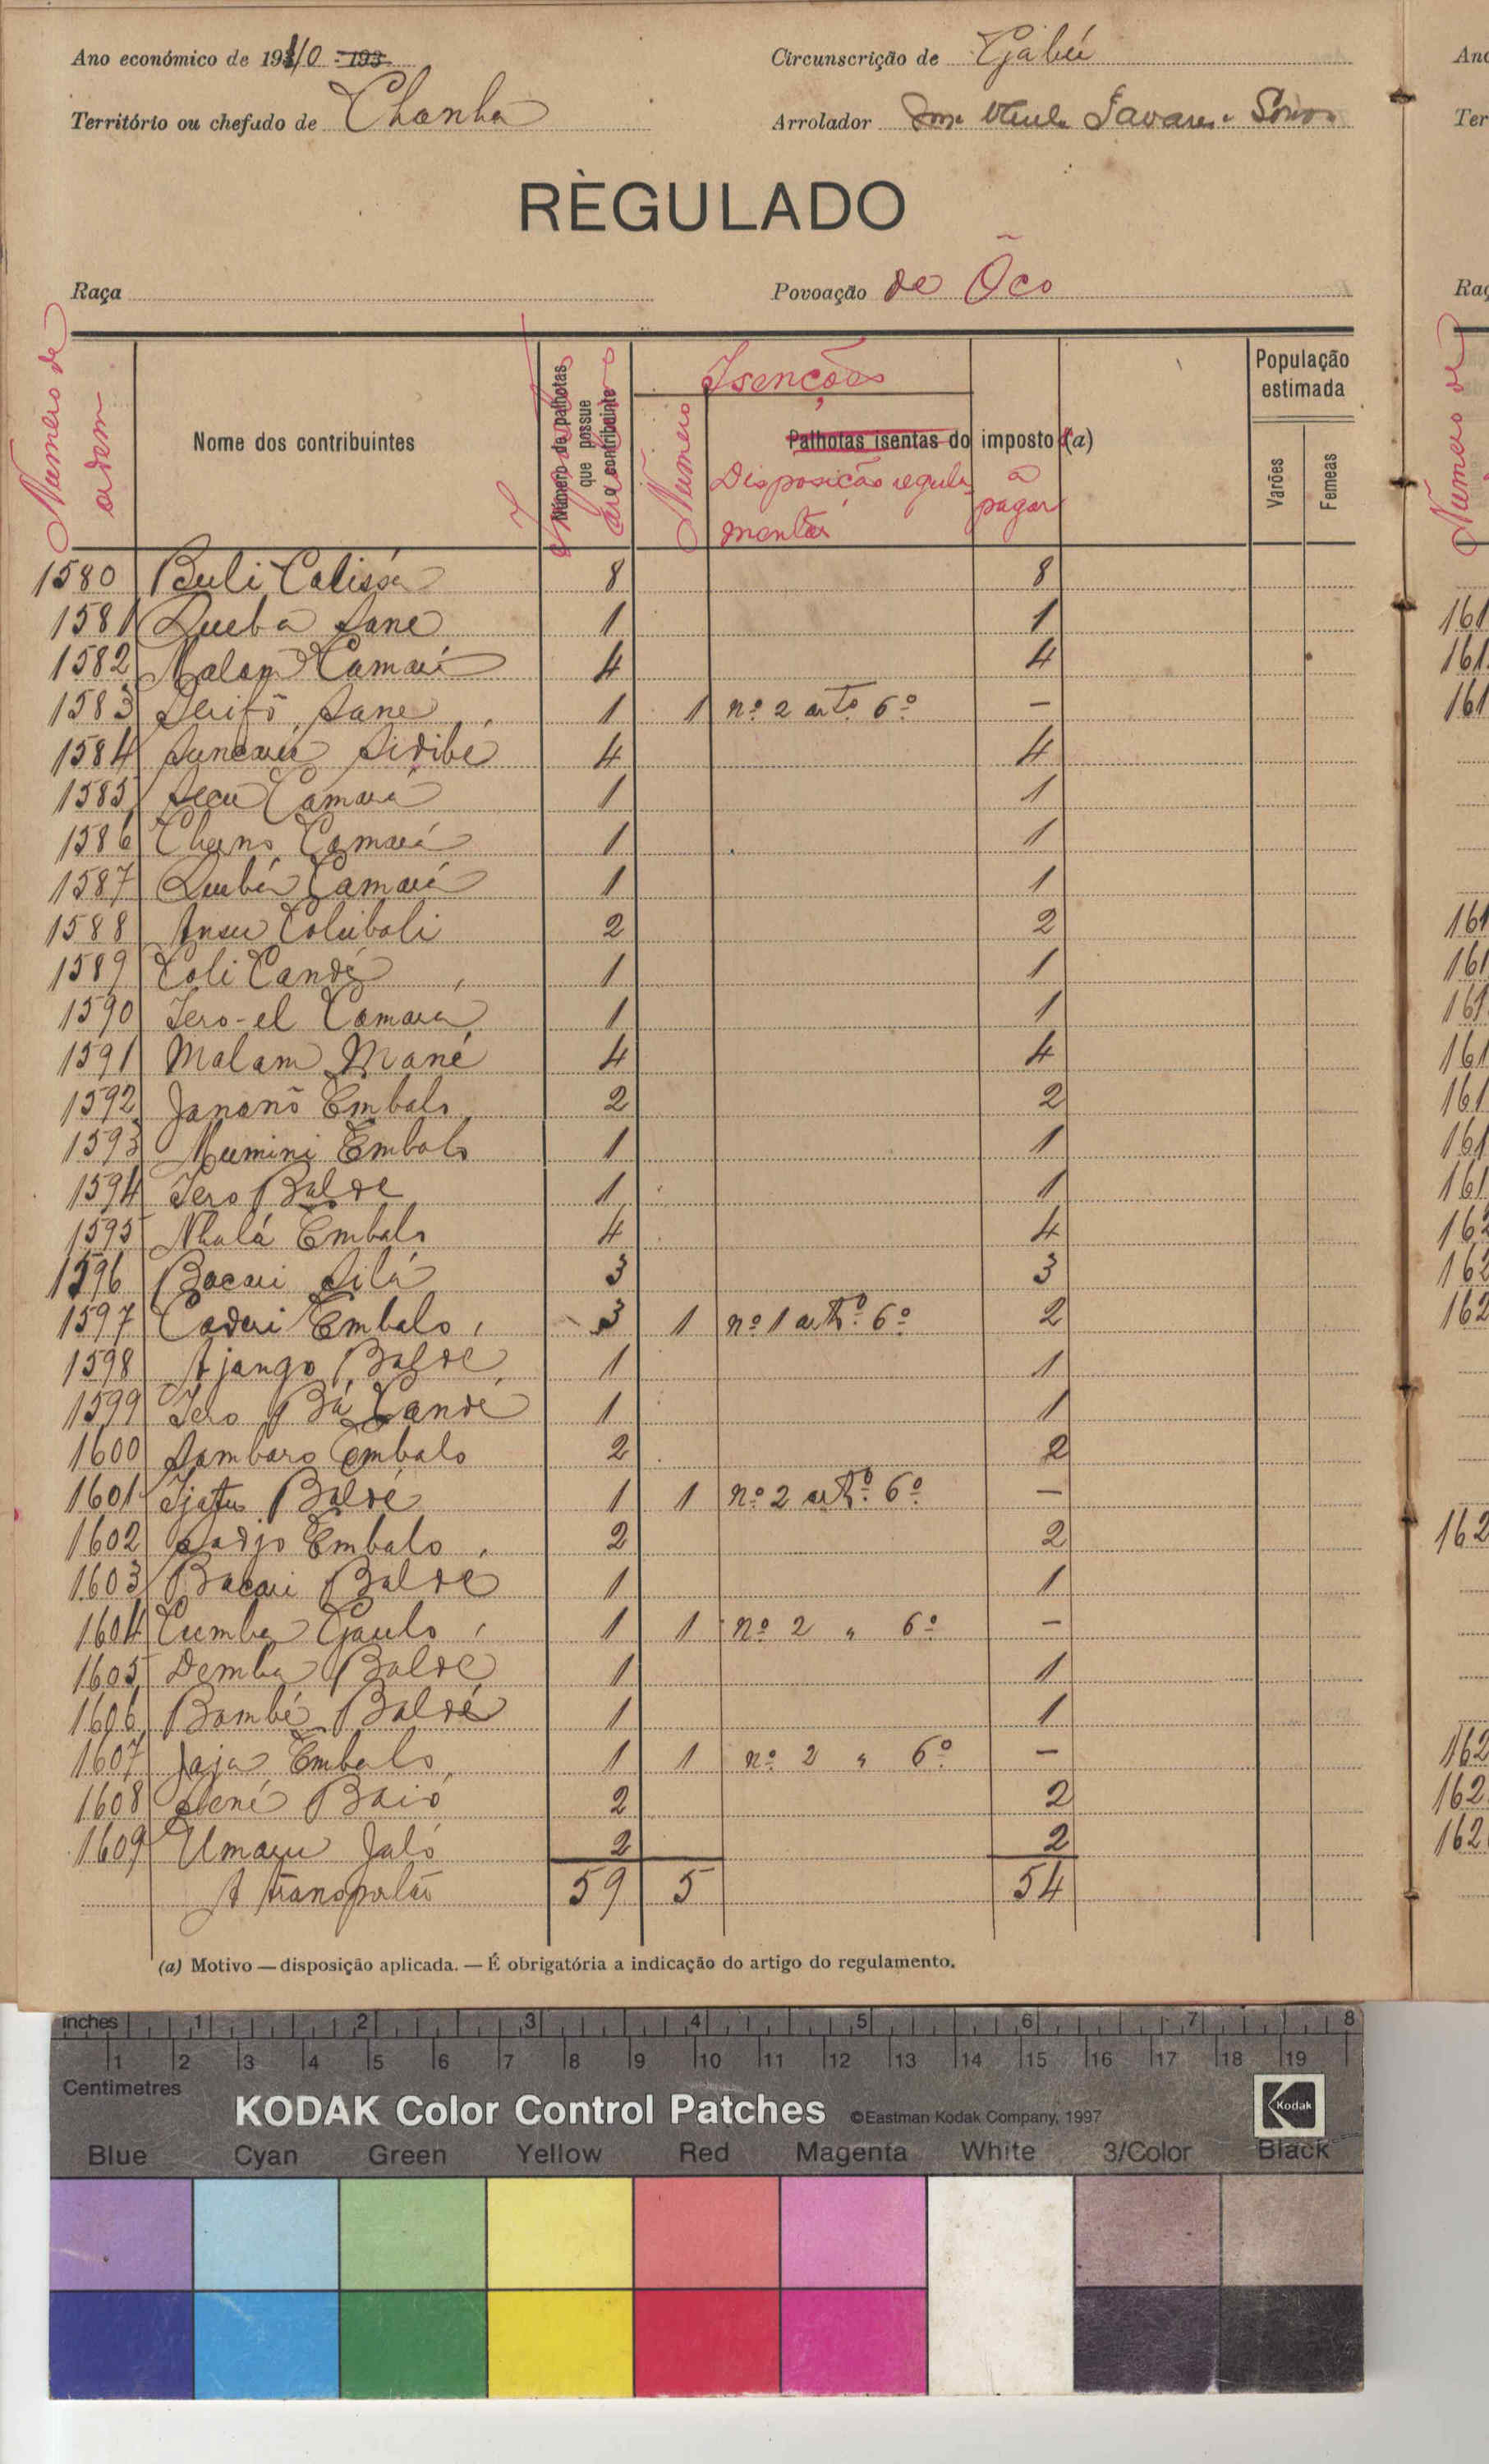 Ano económico de 194/0 - 193
Circunscrição de Gabú
Território ou chefado de Chanha
Arrolador Tavares
RÈGULADO
Raça
Povoação de Ôco
Número de ordem
Nome dos contribuintes
Número de palhotas que possue o contribuinte
Isenções
Número
Palhotas isentas do imposto (a)
Disposição regulamentar
a pagar
População estimada
Varões
Femeas
1580 Buli Calissa 8 8
1581 Queba Sane 1 1
1582 Malam Camará 4 4
1583 Serifo Sane 1 1 nº 2 artº 6º –
1584 Suncaru Sidibé 4 4
1585 Secu Camará 1 1
1586 Cherno Camará 1 1
1587 Queba Camará 1 1
1588 Ansu Colubali 2 2
1589 Coli Candé 1 1
1590 Iero-el Camara 1 1
1591 Malam Mané 4 4
1592 Jananõ Embalo 2 2
1593 Mumini Embalo 1 1
1594 Iero Balde 1 1
1595 Nhalá Embalo 4 4
1596 Bacari Silá 3 3
1597 Caderi Embalo 3 1 nº 1 artº 6º 2
1598 Ajango Balde 1 1
1599 Iero Bá Candé 1 1
1600 Sambaro Embalo 2 2
1601 Ijatu Baldé 1 1 nº 2 artº 6º –
1602 Sadjo Embalo 2 2
1603 Bacari Balde 1 1
1604 Cumba Gaulo 1 1 nº 2 " 6º –
1605 Demba Balde 1 1
1606 Bambé Baldé 1 1
1607 Jaja Embalo 1 1 nº 2 " 6º –
1608 Sené Baió 2 2
1609 Umaru Jaló 2 2
A transportar 59 5 54
(a) Motivo — disposição aplicada. — É obrigatória a indicação do artigo do regulamento.
inches 1 2 3 4 5 6 7 8
1 2 3 4 5 6 7 8 9 10 11 12 13 14 15 16 17 18 19
Centimetres
KODAK Color Control Patches ©Eastman Kodak Company, 1997 Kodak
Blue Cyan Green Yellow Red Magenta White 3/Color Black